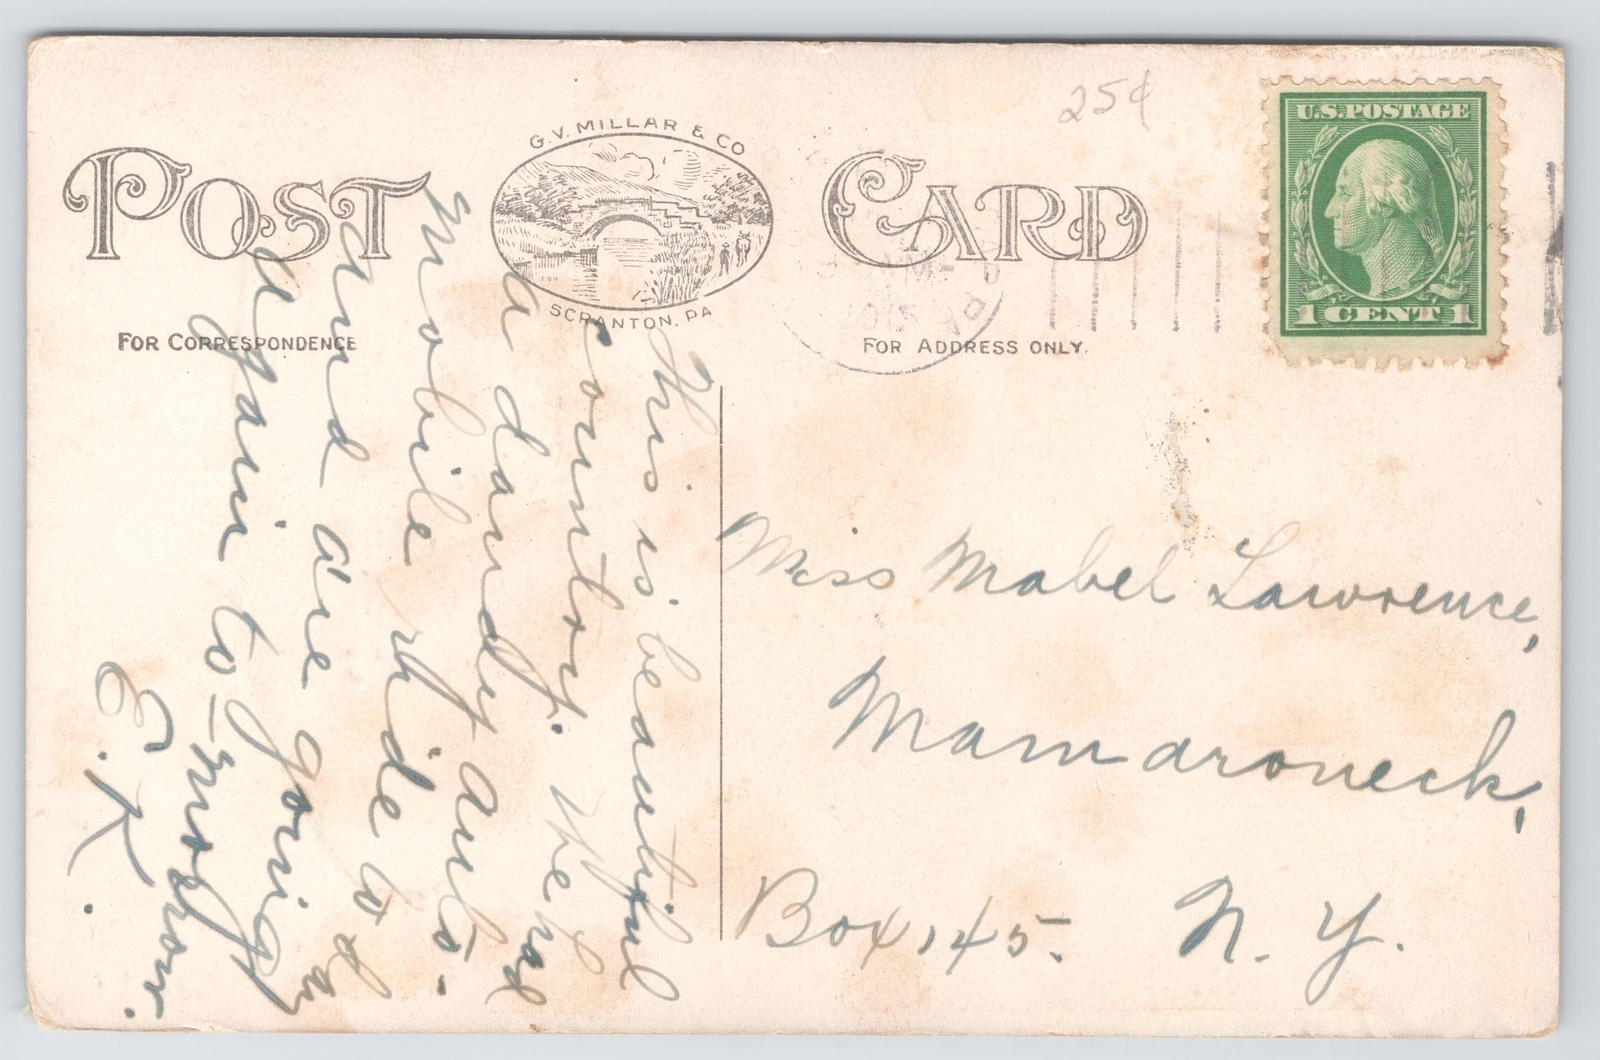 25¢
U.S. POSTAGE
1 CENT 1
G. V. MILLAR & CO
SCRANTON, PA
POST CARD
FOR CORRESPONDENCE
FOR ADDRESS ONLY.
AM
This is beautiful
country. We had
a dandy auto-
mobile ride to day
and are going
again to-morrow.
E. K.
Miss Mabel Lawrence,
Mamaroneck,
Box 145. N. Y.